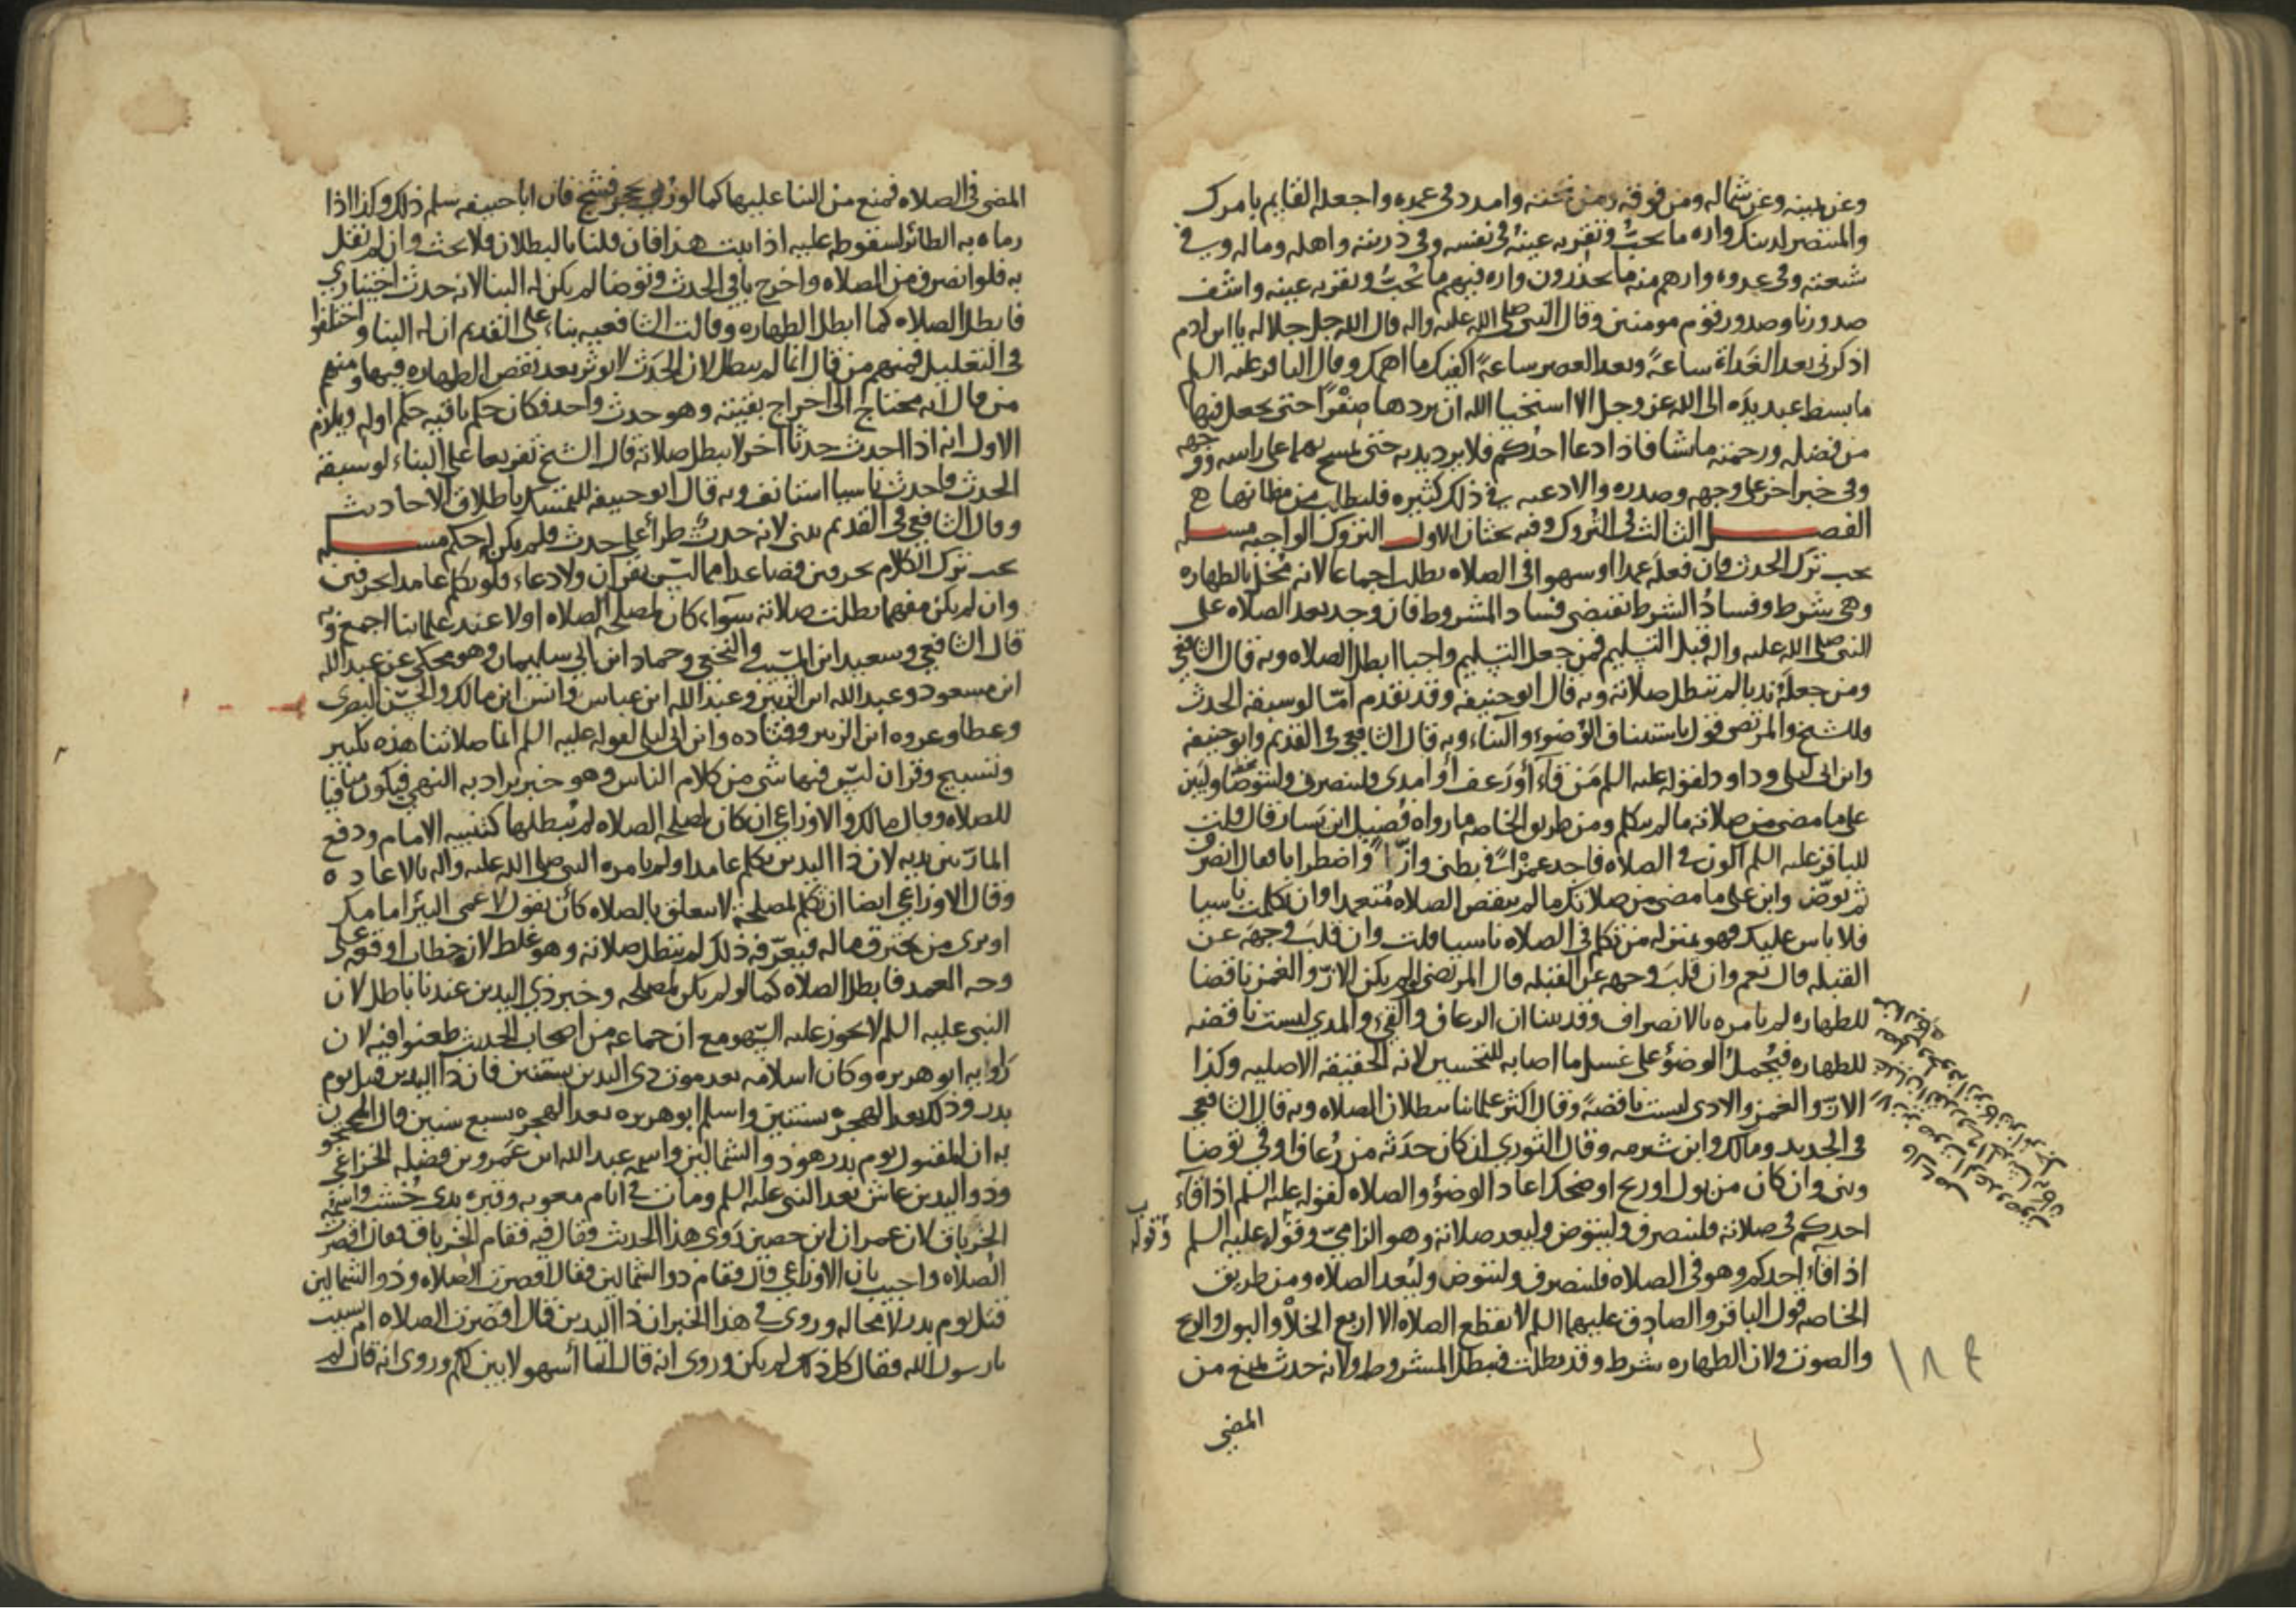 وعن يمينه وعن شماله ومن فوقه ومن تحته وامدد في عمره واجعله القايم بامرك
والمنتصر لدينك واره ما يحب وتقر به عينه في نفسه وفي ذريته واهله وماله وفي
شيعته وفي عدوه وارهم منه ما يحذرون واره فيهم ما يحب وتقر به عينه واشف
صدورنا وصدور قوم مومنين وقال النبي صلى الله عليه واله قال الله جل جلاله يا ابن ادم
اذكرني بعد الغداة ساعة وبعد العصر ساعة اكفيك ما اهمك وقال الباقر عليه السلم
ما بسط عبد يده الى الله عز وجل الا استحيا الله ان يردها صفرا حتى يجعل فيها
من فضله ورحمته ما شا فاذا دعا احدكم فلا يرد يديه حتى يمسح بهما على راسه ووجهه
وفي خبر اخر على وجهه وصدره والادعيه في ذلك كثيره فليطلب من مظانها
الفصل الثالث في التروك وفيه بحثان الاول التروك الواجبه مسله
يجب ترك الحدث فان فعله عمدا او سهوا في الصلاه بطلت اجماعا لانه مخل بالطهاره
وهي شرط وفساد الشرط يقتضي فساد المشروط فان وجد بعد الصلاه على
النبي صلى الله عليه واله قبل التسليم فمن جعل التسليم واجبا ابطل الصلاه وبه قال الشافعي
ومن جعله ندبا لم تبطل صلاته وبه قال ابو حنيفه وقد تقدم امّا لو سبقه الحدث
فللشيخ والمرتضى قول باستيناف الوضوء والبناء وبه قال الشافعي في القديم وابو حنيفه
وابن ابي ليلى وداود لقوله عليه السلم من قاء أو رعف أو امذى فلينصرف وليتوضأ وليبن
على ما مضى من صلاته ما لم يتكلم ومن طريق الخاصه ما رواه فضيل ابن يسار قال قلت
للباقر عليه السلم اكون في الصلاه فاجد غمزا في بطني وازّا واضطرابا فقال انصرف
ثم توضّ وابن على ما مضى من صلاتك ما لم تنقض الصلاه متعمدا وان تكلمت ناسيا
فلا باس عليك فهو بمنزله من تكلم في الصلاه ناسيا قلت وان قلب وجهه عن
القبله قال نعم وان قلب وجهه عن القبله قال المرتضى لو لم يكن الازّ والغمز ناقضا
للطهاره لم يامره بالانصراف وقد بينا ان الرعاف والقيء والمذي ليست ناقضه
للطهاره فيحمل الوضوء على غسل ما اصابه للتحسين لانه الحقيقه الاصليه وكذا
الازّ والغمز والاذى ليست ناقضة وقال اكثر علمائنا ببطلان الصلاه وبه قال الشافعي
في الجديد ومالك وابن شبرمه وقال الثوري ان كان حدثه من رعاف او قي توضا
وبنى وان كان من بول او ريح او ضحك اعاد الوضوء والصلاه لقوله عليه السلم اذا قاء
احدكم في صلاته فلينصرف وليتوض وليعد صلاته وهو الزاميّ وقوله عليه السلم
اذا فساء احدكم وهو في الصلاه فلينصرف وليتوض وليعد الصلاه ومن طريق
الخاصه قول الباقر والصادق عليهما السلم لا يقطع الصلاه الا اربع الخلا والبول والريح
والصوت ولان الطهاره شرط وقد بطلت فيبطل المشروط ولانه حدث يمنع من
المضي
١٨٤
المضي في الصلاه فمنع من البنا عليها كما لو رمي بحجر فشج فان ابا حنيفه سلم ذلك وكذا اذا
رماه به الطائر لسقوطه عليه اذا ثبت هذا فان قلنا بالبطلان فلا بحث وان لم نقل
به فلو انصرف من الصلاه واخرج باقي الحدث وتوضا لم يكن له البنا لانه حدث اختياري
فابطل الصلاه كما ابطل الطهاره وقالت الشافعيه بناء على القديم ان له البنا واختلفوا
في التعليل فمنهم من قال انما لم يبطل لان الحدث لا يوثر بعد نقض الطهاره فيها ومنهم
من قال انه محتاج الى اخراج بقيته وهو حدث واحد فكان حكم باقيه حكم اوله ويلزم
الاول انه اذا احدث حدثا اخر لا تبطل صلاته قال الشيخ تفريعا على البناء لو سبقه
الحدث فاحدث ناسيا استانف وبه قال ابو حنيفه للتمسك باطلاق الاحاديث
وقال الشافعي في القديم يبني لانه حدث طرأ على حدث فلم يكن له حكم مسله
يجب ترك الكلام بحرفين فصاعدا مما ليس بقران ولا دعاء فلو تكلم عامدا بحرفين
وان لم يكن مفهما بطلت صلاته سواء كان لمصلحه الصلاه اولا عند علمائنا اجمع وبه
قال الشافعي وسعيد ابن المسيب والنخعي وحماد ابن ابي سليمان وهو محكي عن عبد الله
ابن مسعود وعبد الله ابن الزبير وعبد الله ابن عباس وانس ابن مالك والحسن البصري
وعطا وعروه ابن الزبير وقتاده وابن ابي ليلى لقوله عليه السلم انما صلاتنا هذه تكبير
وتسبيح وقران ليس فيها شي من كلام الناس وهو خبر يراد به النهي فيكون منافيا
للصلاه وقال مالك والاوزاعي ان كان لمصلحه الصلاه لم يبطلها كتنبيه الامام ودفع
المارّ بين يديه لان ذا اليدين تكلم عامدا ولم يامره النبي صلى الله عليه واله بالاعاده
وقال الاوزاعي ايضا ان تكلم لمصلحة لا تتعلق بالصلاه كأن يقول لاعمى البئر امامك
او يرى من يحترق ماله فيعرّفه ذلك لم تبطل صلاته وهو غلط لانه خطاب اوقعه على
وجه العمد فابطل الصلاه كما لو لم يكن لمصلحه وخبر ذي اليدين عندنا باطل لان
النبي عليه السلم لا يجوز عليه السّهو مع ان جماعه من اصحاب الحديث طعنوا فيه لان
راويه ابو هريره وكان اسلامه بعد موت ذي اليدين بسنتين فان ذا اليدين قتل يوم
بدر وذلك بعد الهجره بسنتين واسلم ابو هريره بعد الهجره بسبع سنين قال المحتجون
به ان المقتول يوم بدر هو ذو الشمالين واسمه عبد الله ابن عمرو بن فضله الخزاعي
وذو اليدين عاش بعد النبي عليه السلم ومات في ايام معويه وقبره بذي خشب واسمه
الخرباق لان عمران ابن حصين روى هذا الحديث فقال فيه فقام الخرباق فقال اقصرت
الصلاه واجيب بان الاوزاعي قال فقام ذو الشمالين فقال اقصرت الصلاه وذو الشمالين
قتل يوم بدر لا محاله وروي في هذا الخبر ان ذا اليدين قال اقصرت الصلاه ام نسيت
يا رسول الله فقال كل ذلك لم يكن وروي انه قال انما أسهو لابين لكم وروي انه قال لم